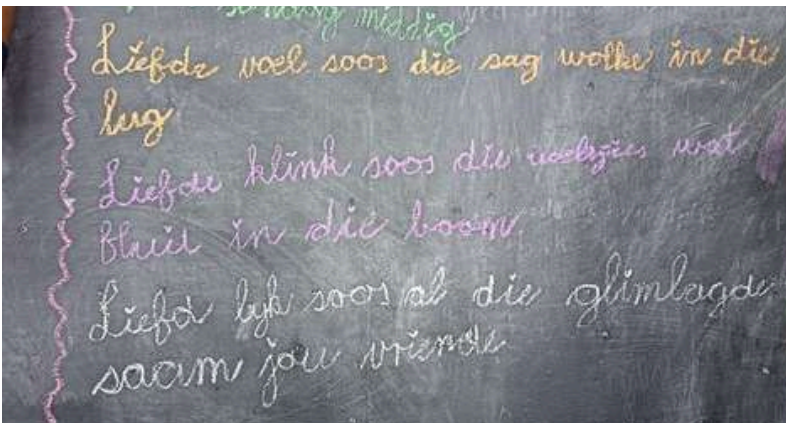 middig
Liefde voel soos die sag wolke in die
lug
Liefde klink soos die voeltjies wat
fluit in die boom.
Liefd lyk soos al die glimlagde
saam jou vriende